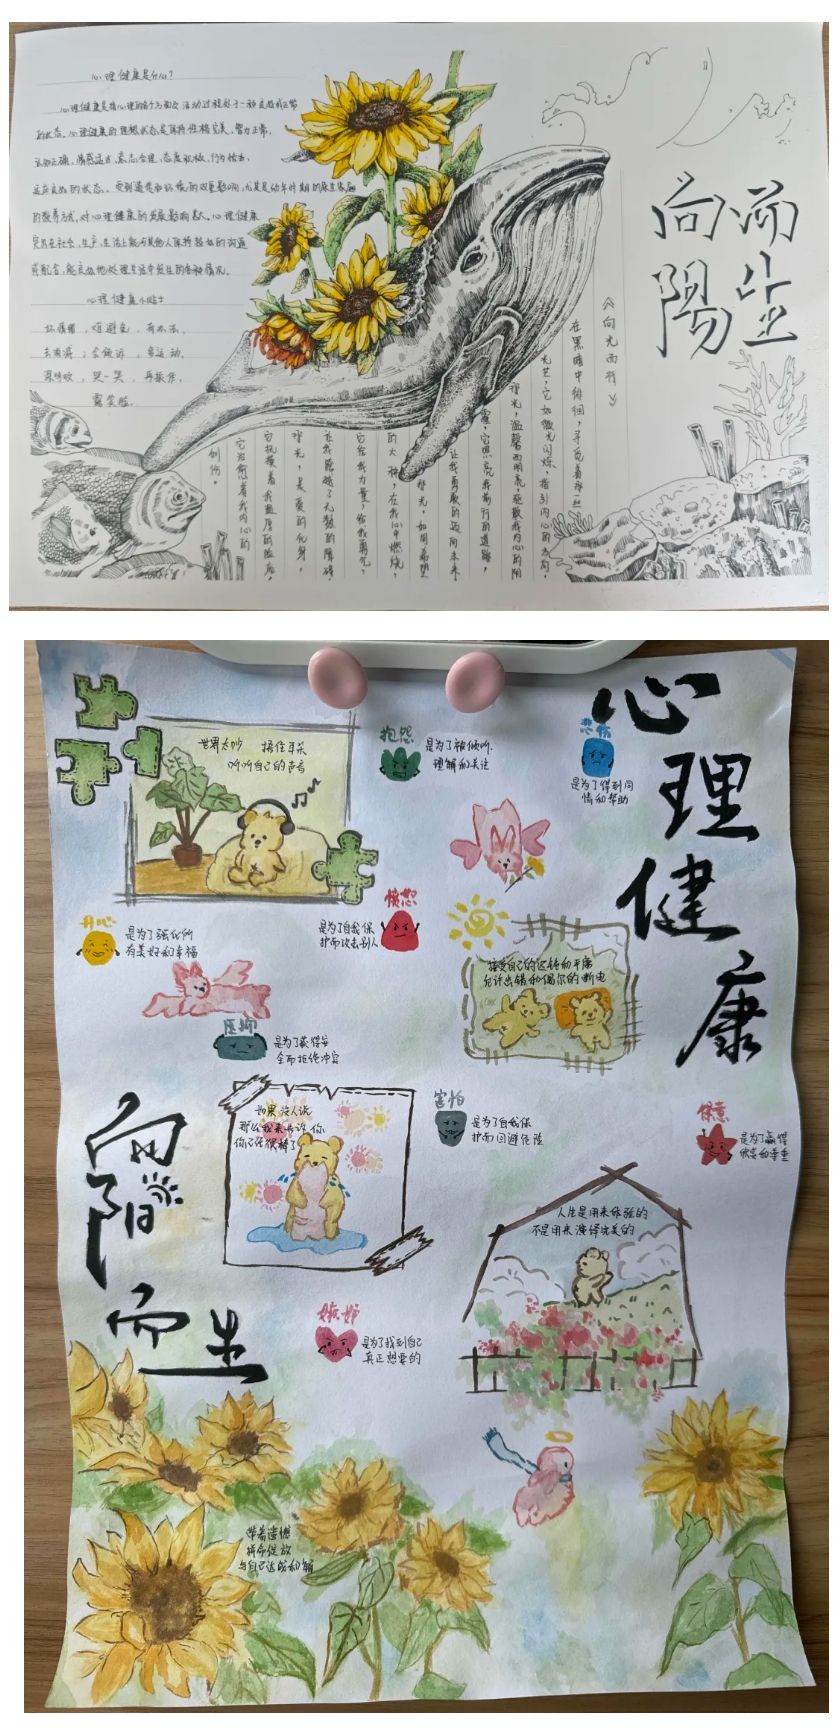 心理健康是什么？
心理健康是指心理的各个方面及活动过程处于一种良好或正常
的状态。心理健康的理想状态是保持性格完美、智力正常、
认知正确、情感适当、意志合理、态度积极、行为恰当、
适应良好的状态。受到遗传和环境的双重影响，尤其是幼年时期的原生家庭
的教养方式，对心理健康的发展影响甚大。心理健康
突出在社会、生产、生活上能与其他人保持较好的沟通
或配合，能良好地处理生活中发生的各种情况。
心理健康小贴士
坏情绪，难避免，有办法，
去面对，会倾诉，常运动，
深呼吸，哭一哭，再振作，
露笑脸。
向阳
而生
《向光而行》
在黑暗中徘徊，寻觅着那一丝
光芒，它如微光闪烁，指引内心的方向，
背光，温馨而明亮，驱散我内心的阴
霾，它照亮我前行的道路，
让我勇敢的迈向未来
背光，如同希望
的火种，在我心中燃烧，
它给我力量，给我勇气，
让我跨越了无数的障碍，
背光，是爱的化身，
它抚摸着我疲厚的脸庞，
它治愈着我内心的
创伤。
心理健康
向阳而生
世界太吵 捂住耳朵
听听自己的声音
抱怨
是为了被倾听、
理解和关注
悲伤
是为了得到同
情和帮助
开心
是为了强化所
有美好和幸福
愤怒
是为了自我保
护而攻击别人
接受自己的迟钝和平庸
允许出错和偶尔的断电
压抑
是为了获得安
全而拒绝冲突
如果没人说
那么我来告诉你
你已经很棒了
害怕
是为了自我保
护而回避危险
是为了赢得
欣赏和尊重
人生是用来体验的
不是用来演绎完美的
嫉妒
是为了找到自己
真正想要的
带着遗憾
拼命绽放
与自己达成和解